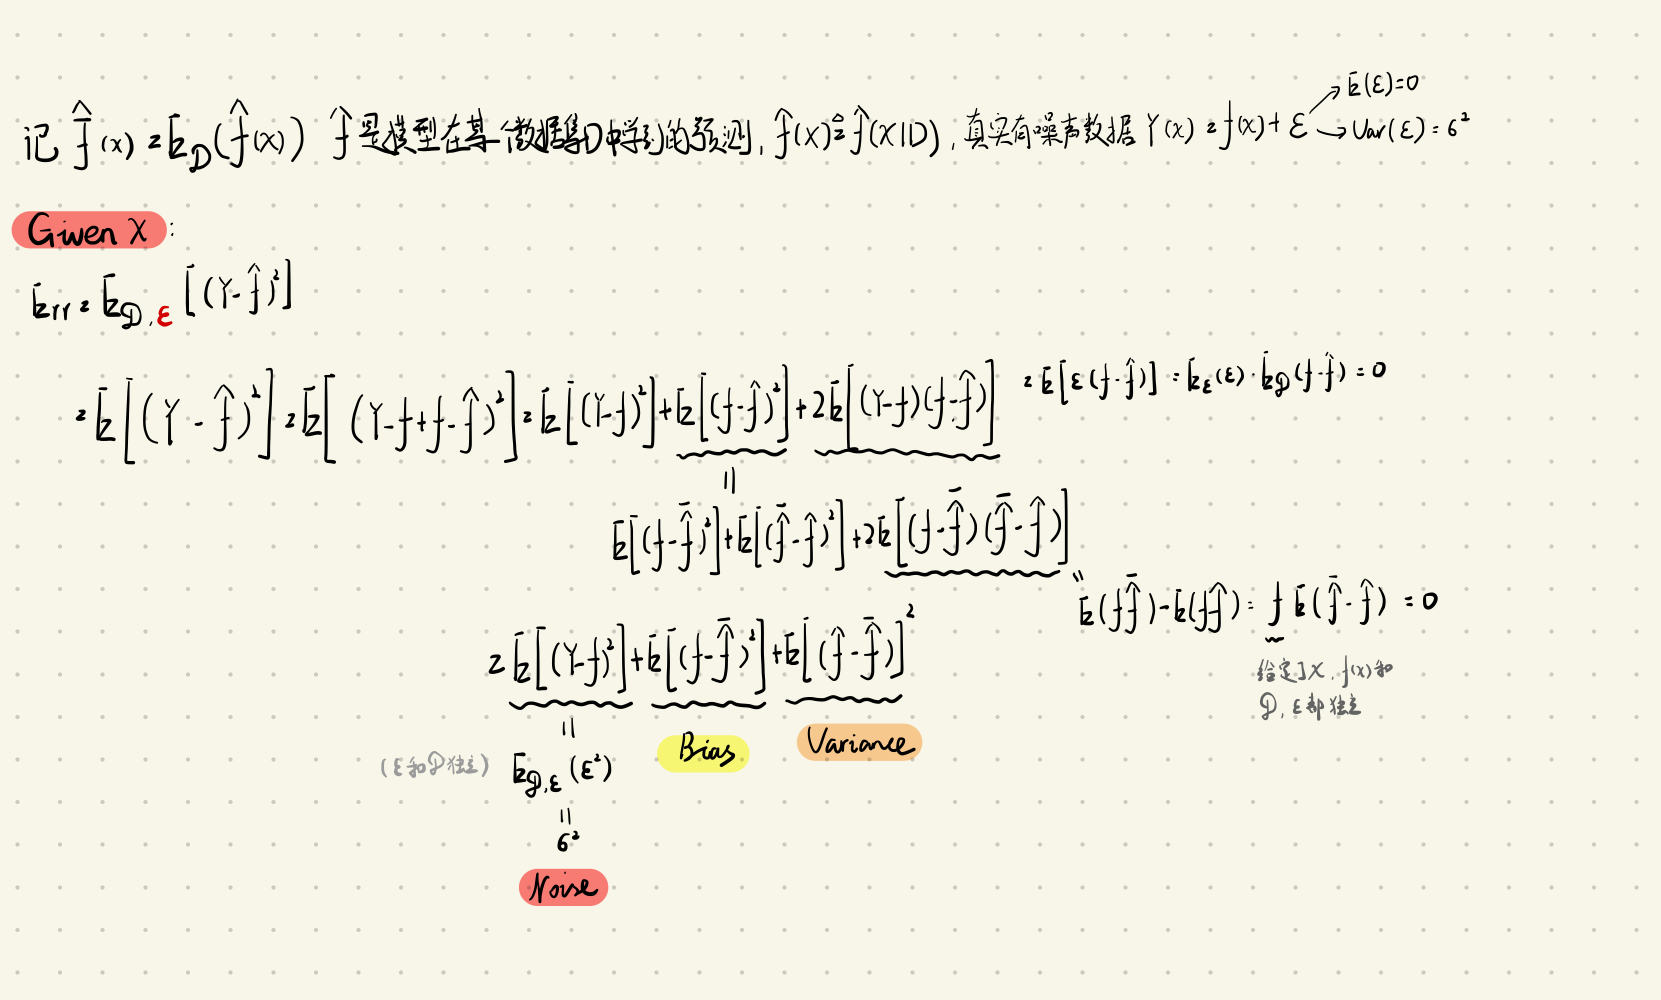 记 \bar{\hat{f}}(x) = E_D(\hat{f}(x)) \hat{f} 是模型在某一个数据集D中学到的预测, \hat{f}(x) ≙ \hat{f}(x|D), 真实有噪声数据 Y(x) = f(x) + ε → E(ε)=0
→ Var(ε) = σ²
Given X :
Err = E_{D,ε} [(Y-\hat{f})²]
= E[(Y-\hat{f})²] = E[(Y-f+f-\hat{f})²] = E[(Y-f)²] + E[(f-\hat{f})²] + 2E[(Y-f)(f-\hat{f})] = E[ε(f-\hat{f})] = E_ε(ε)·E_D(f-\hat{f}) = 0
||
E[(f-\bar{\hat{f}})²] + E[(\bar{\hat{f}}-\hat{f})²] + 2E[(f-\bar{\hat{f}})(\bar{\hat{f}}-\hat{f})]
|| E(f\bar{\hat{f}}) - E(f\hat{f}) = f E(\bar{\hat{f}}-\hat{f}) = 0
给定了x, f(x)和
D, ε都独立
= E[(Y-f)²] + E[(f-\bar{\hat{f}})²] + E[(\hat{f}-\bar{\hat{f}})]²
||
Bias
Variance
(ε和D独立) E_{D,ε}(ε²)
||
σ²
Noise